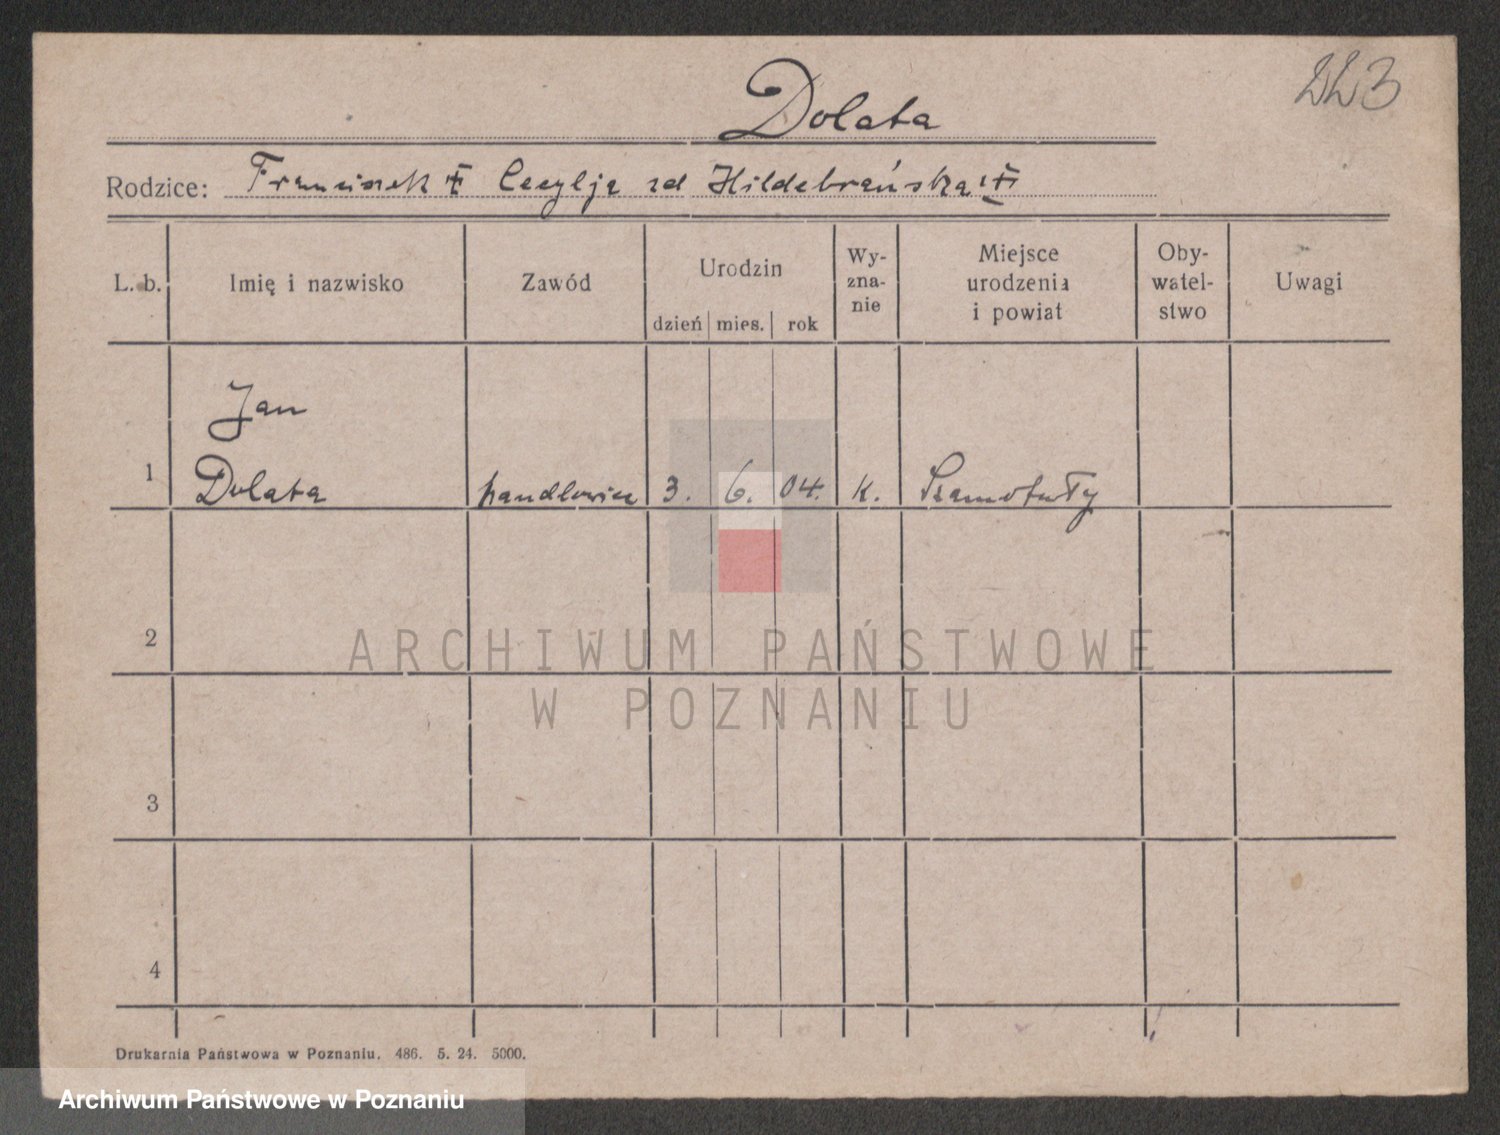 223
Dolata
Rodzice: Franciszek ‡ Cecylja zd Hildebrańska ‡
L. b. Imię i nazwisko Zawód Urodzin dzień mies. rok Wy-zna-nie Miejsce urodzenia i powiat Oby-watel-stwo Uwagi
Jan
1 Dolata handlowiec 3. 6. 04. k. Szamotuły
2
ARCHIWUM PAŃSTWOWE
W POZNANIU
3
4
Drukarnia Państwowa w Poznaniu. 486. 5. 24. 5000.
Archiwum Państwowe w Poznaniu